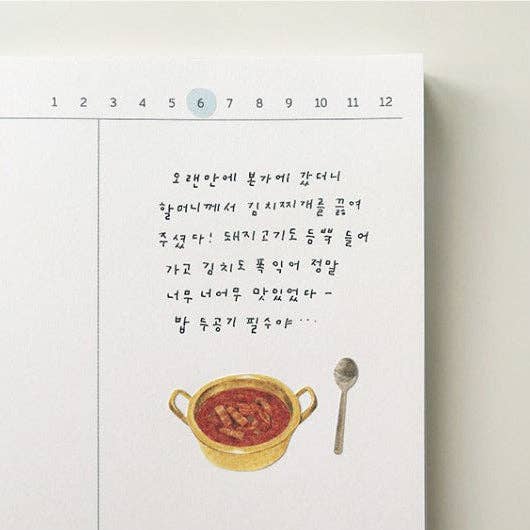 1 2 3 4 5 6 7 8 9 10 11 12
오랜만에 본가에 갔더니
할머니께서 김치찌개를 끓여
주셨다! 돼지고기도 듬뿍 들어
가고 김치도 폭익어 정말
너무 너어무 맛있었다-
밥 두공기 필수야...